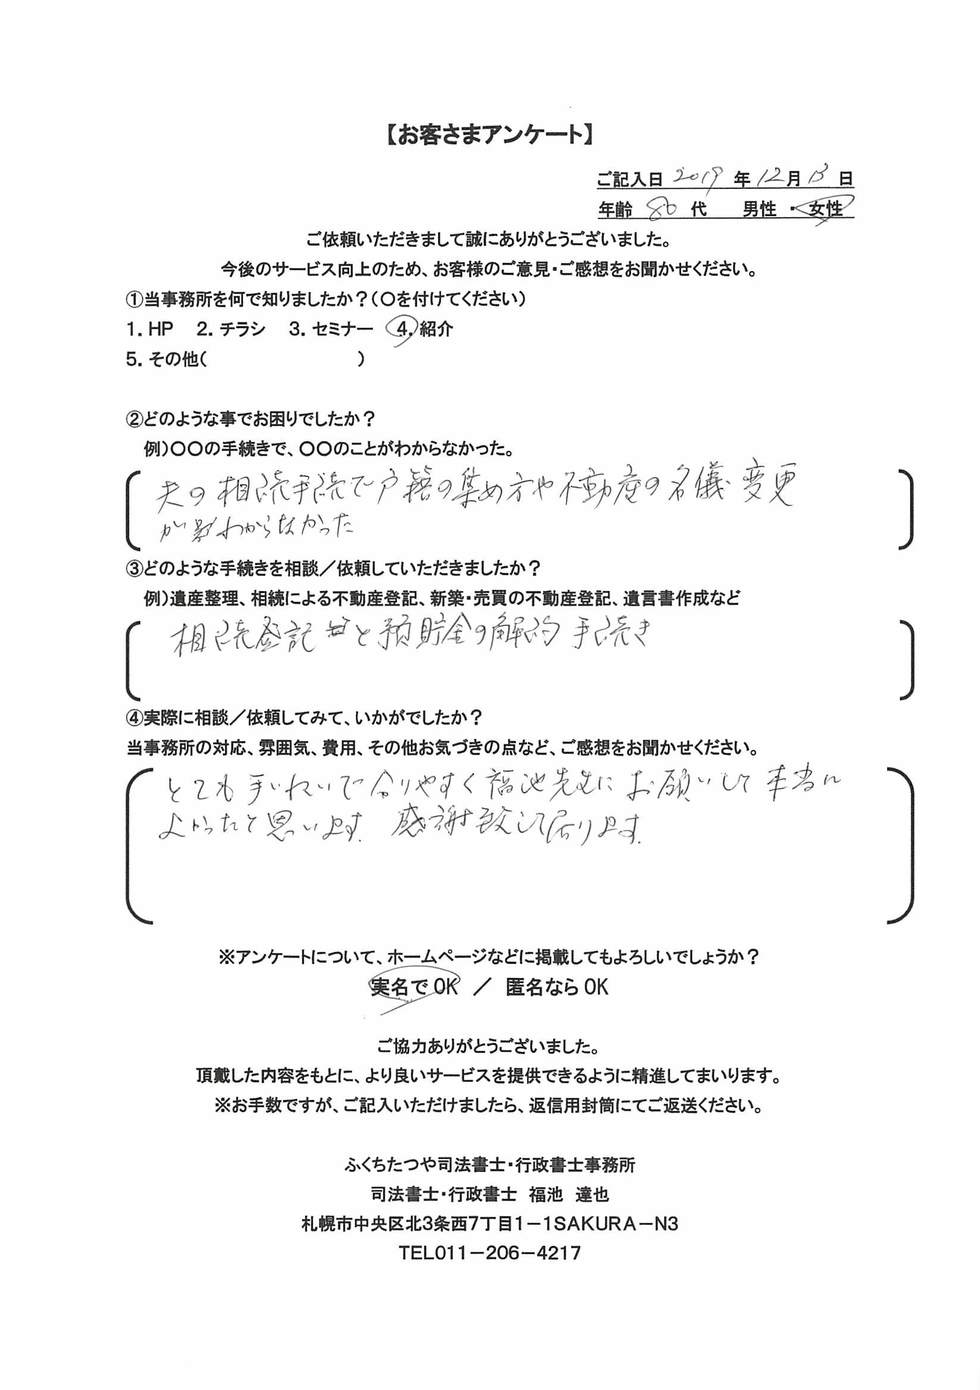 【お客さまアンケート】
ご記入日 2019 年 12月 13 日
年齢 80 代 男性 ・ 女性
ご依頼いただきまして誠にありがとうございました。
今後のサービス向上のため、お客様のご意見・ご感想をお聞かせください。
①当事務所を何で知りましたか？(〇を付けてください)
1. HP 2. チラシ 3. セミナー 4. 紹介
5. その他( )
②どのような事でお困りでしたか？
例)〇〇の手続きで、〇〇のことがわからなかった。
夫の相続手続で戸籍の集め方や不動産の名儀変更
がわからなかった
③どのような手続きを相談／依頼していただきましたか？
例)遺産整理、相続による不動産登記、新築・売買の不動産登記、遺言書作成など
相続登記と預貯金の解約手続き
④実際に相談／依頼してみて、いかがでしたか？
当事務所の対応、雰囲気、費用、その他お気づきの点など、ご感想をお聞かせください。
とても手いねいで分りやすく福池先生にお願いして本当に
よかったと思います 感謝致して居ります
※アンケートについて、ホームページなどに掲載してもよろしいでしょうか？
実名でOK ／ 匿名ならOK
ご協力ありがとうございました。
頂戴した内容をもとに、より良いサービスを提供できるように精進してまいります。
※お手数ですが、ご記入いただけましたら、返信用封筒にてご返送ください。
ふくちたつや司法書士・行政書士事務所
司法書士・行政書士 福池 達也
札幌市中央区北3条西7丁目1－1SAKURA－N3
TEL011－206－4217